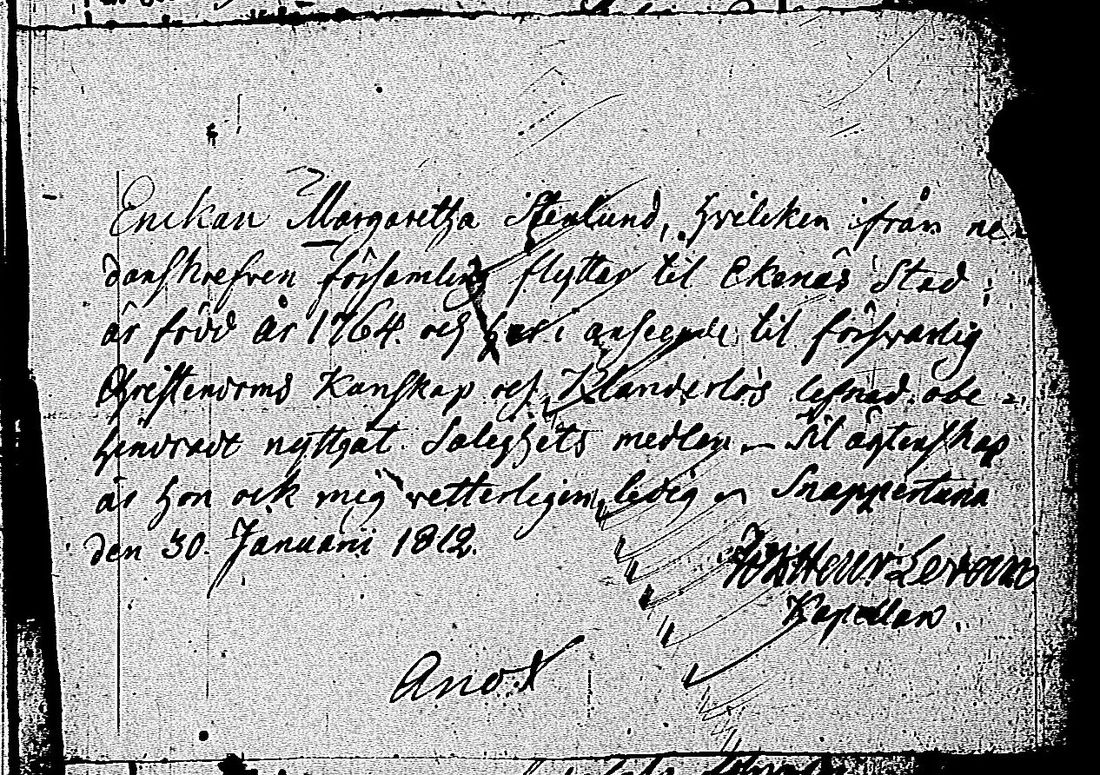 Enckan Margaretha Stenlund, hvilcken från ne-
danskrefven församling flyttar til Ekenäs Stad;
är född år 1764. och har i anseende til försvarlig
Christendoms Kunskap och Klanderlös lefnad obe-
hindradt nyttgat Salighets medlen. Til ägtenskap
är hon ock mig vetterligen ledig. Snappertuna
den 30. Januarii 1812.
Joh Henr:
Kapellan.